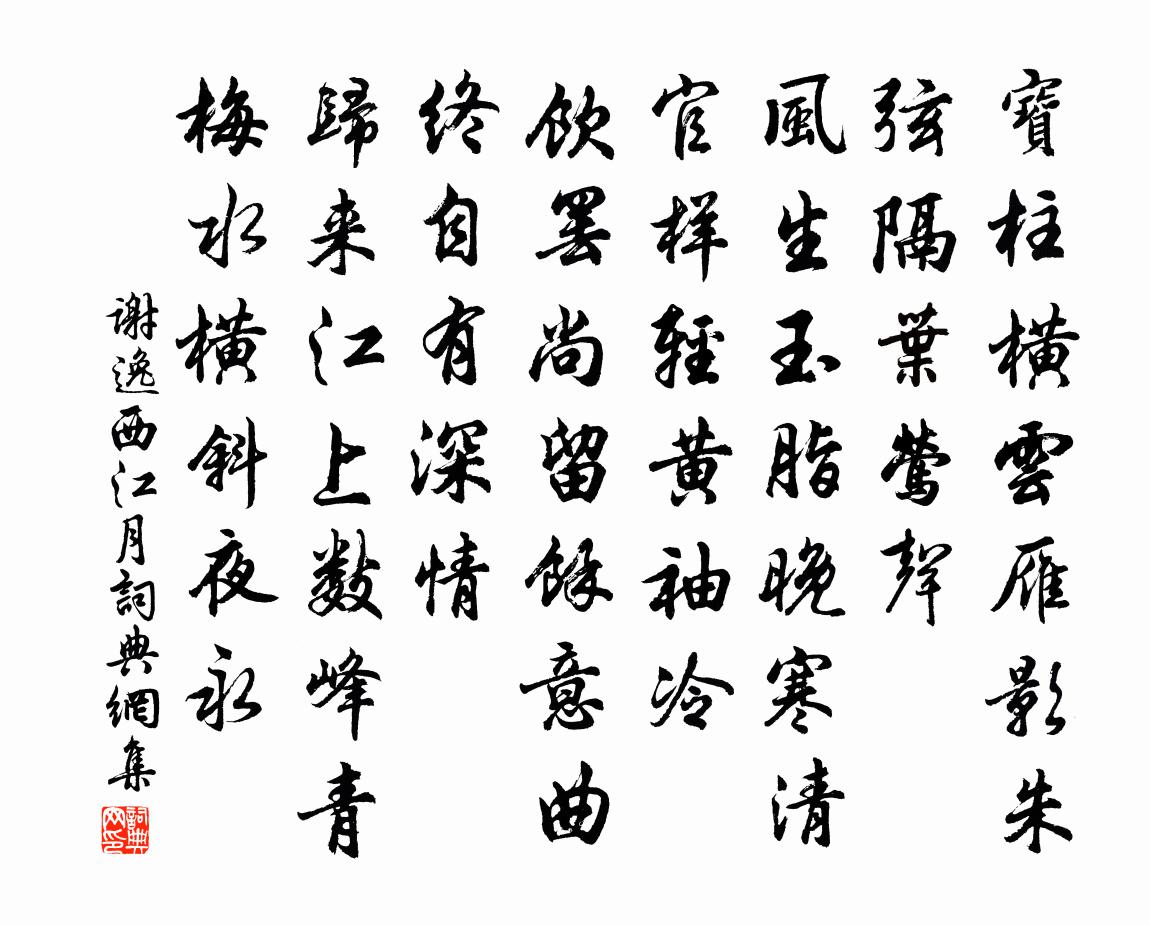 寶柱橫雲雁影朱
弦隔葉鶯聲
風生玉脂晚寒清
官樣輕黃袖冷
飲罷尚留餘意曲
終自有深情
歸来江上數峰青
梅水橫斜夜永
謝逸西江月詞典網集
詞典网印